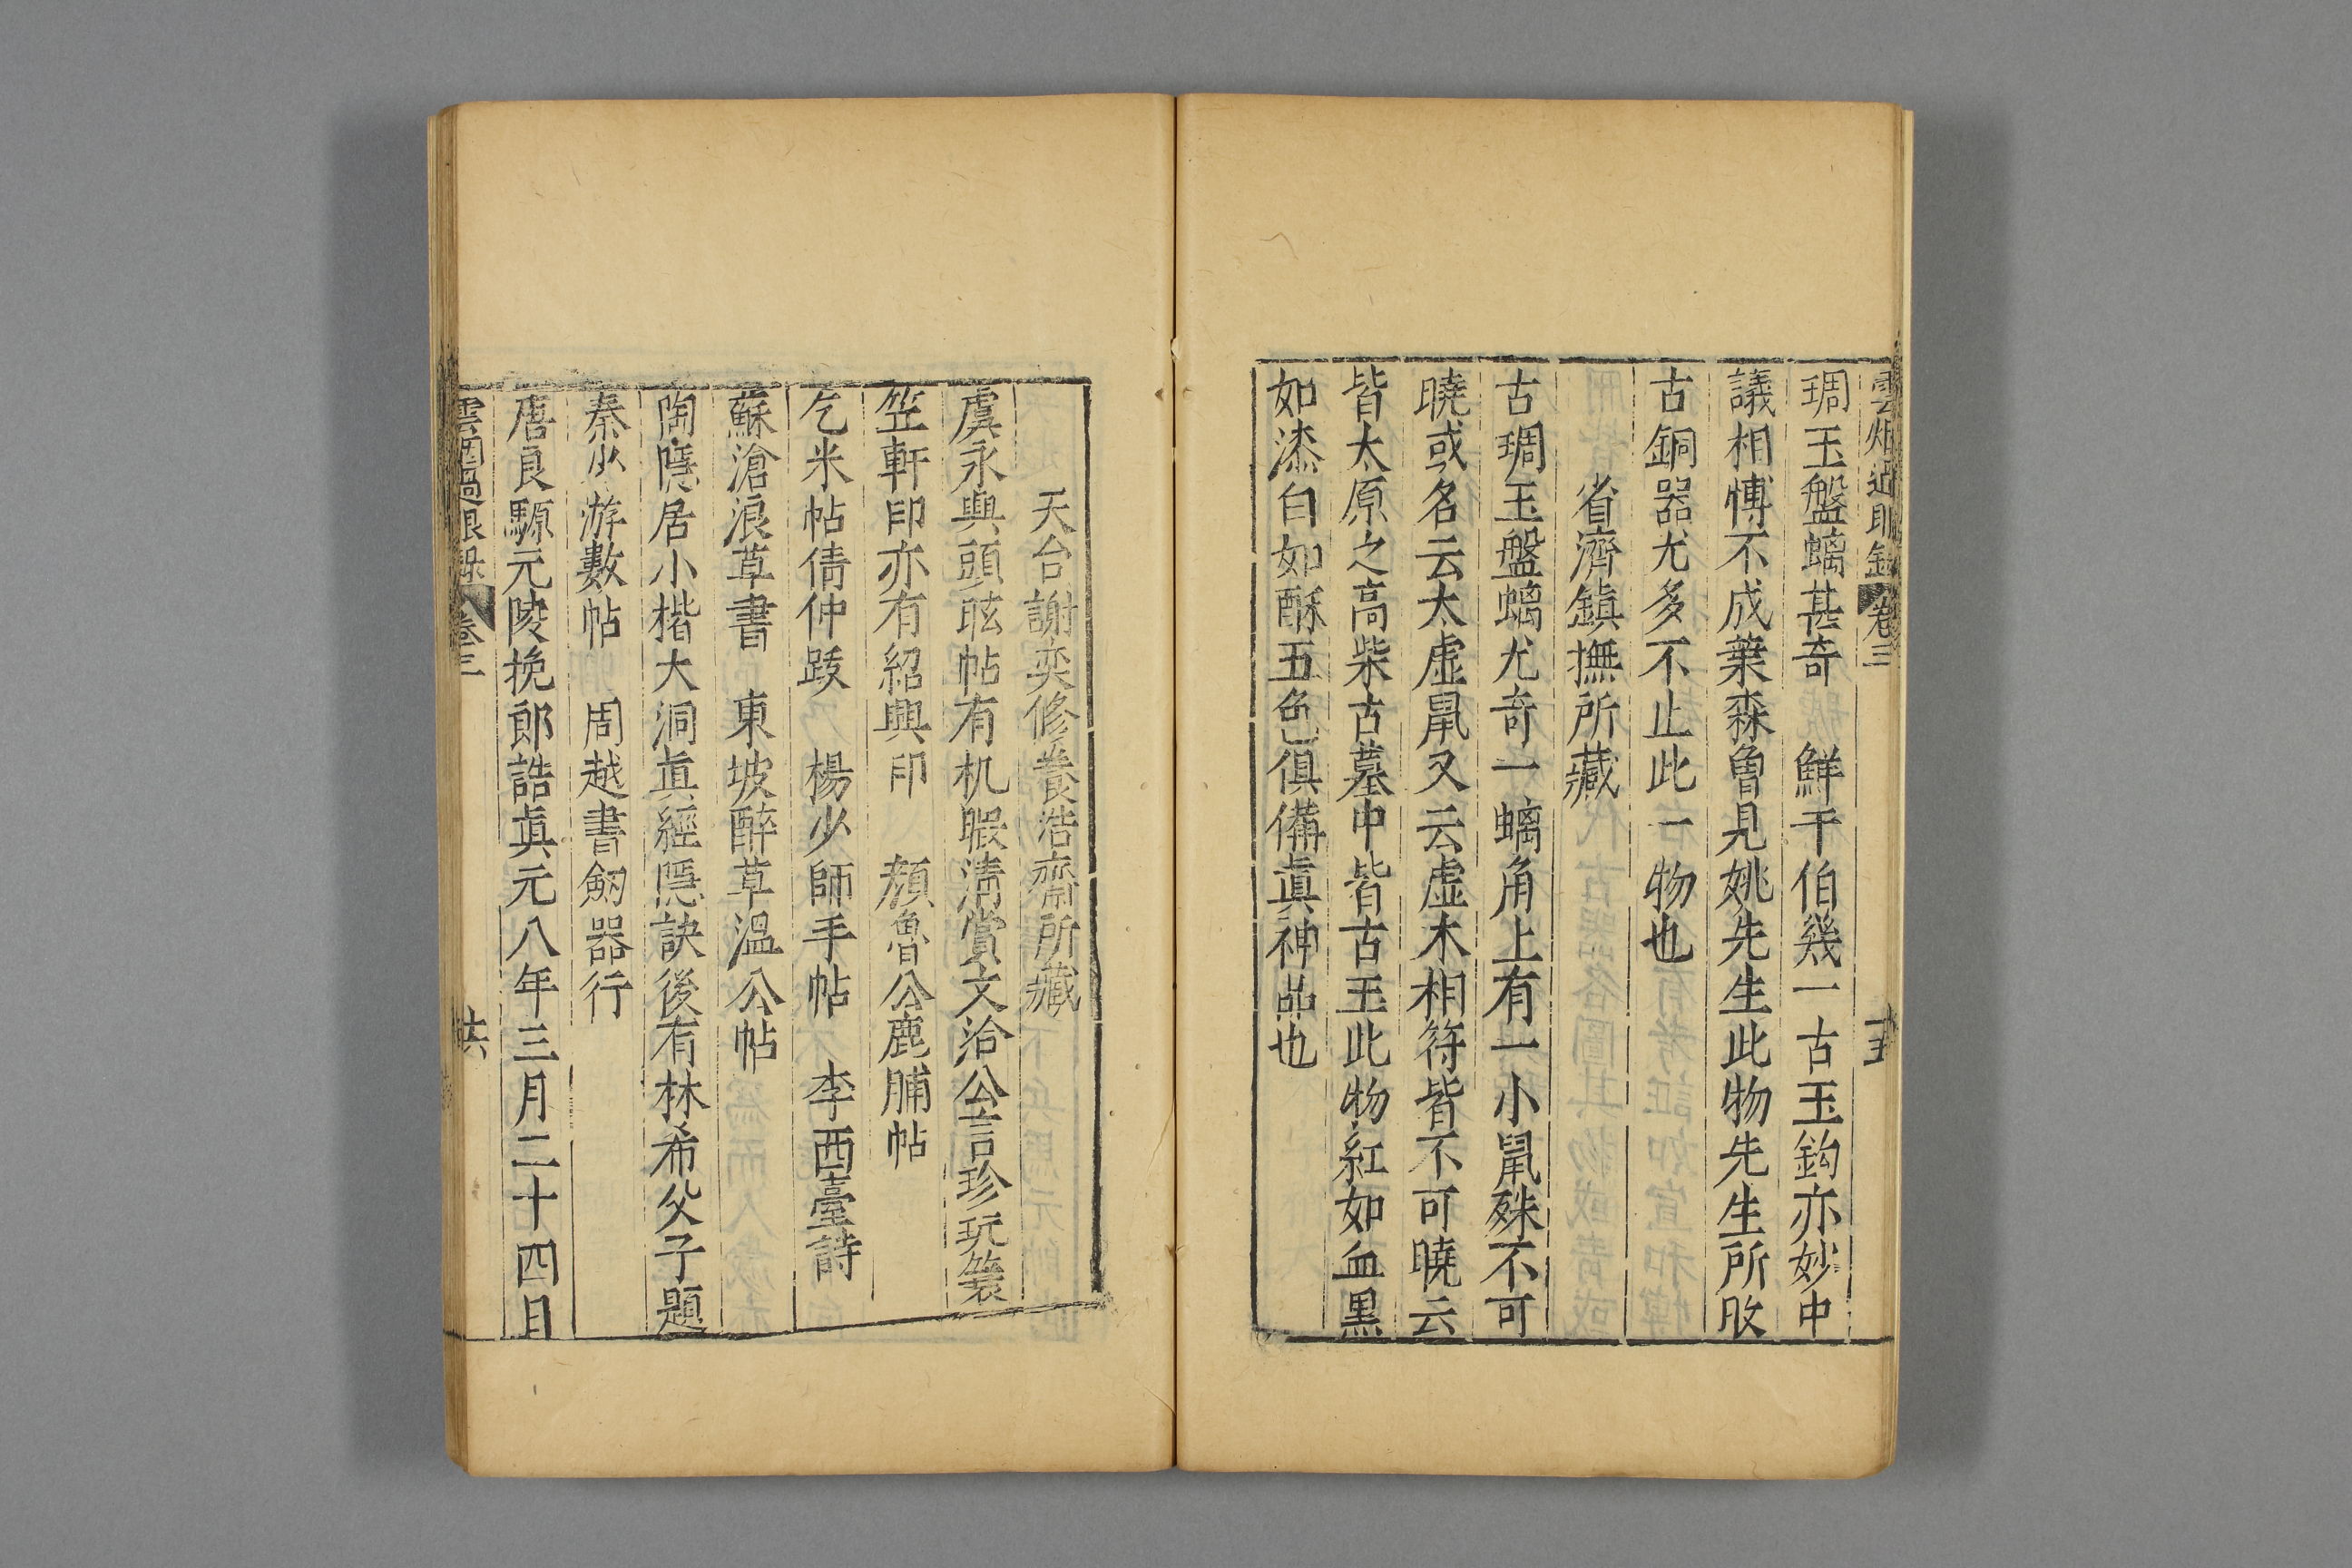 雲烟過眼錄 卷三 十五
琱玉盤螭甚奇 鮮于伯幾一古玉鈎亦妙中
議相博不成葉森魯見姚先生此物先生所收
古銅器尤多不止此一物也
省濟鎮撫所藏
古琱玉盤螭尤奇一螭角上有一小鼠殊不可
曉或名云太虛鼠又云虛木相符皆不可曉云
皆太原之高柴古墓中皆古玉此物紅如血黑
如漆白如酥五色俱備眞神品也
天台謝奕修養浩齋所藏
虞永興頭眩帖有机暇清賞文洽公言珍玩䇳
笠軒印亦有紹興印 顏魯公鹿脯帖
乞米帖倩仲跋 楊少師手帖 李西臺詩
蘇滄浪草書 東坡醉草溫公帖
陶隱居小楷大洞眞經隱訣後有林希父子題
秦少游數帖 周越書劒器行
唐良驃元陵挽郎誥眞元八年三月二十四日
雲烟過眼錄 卷三 十六